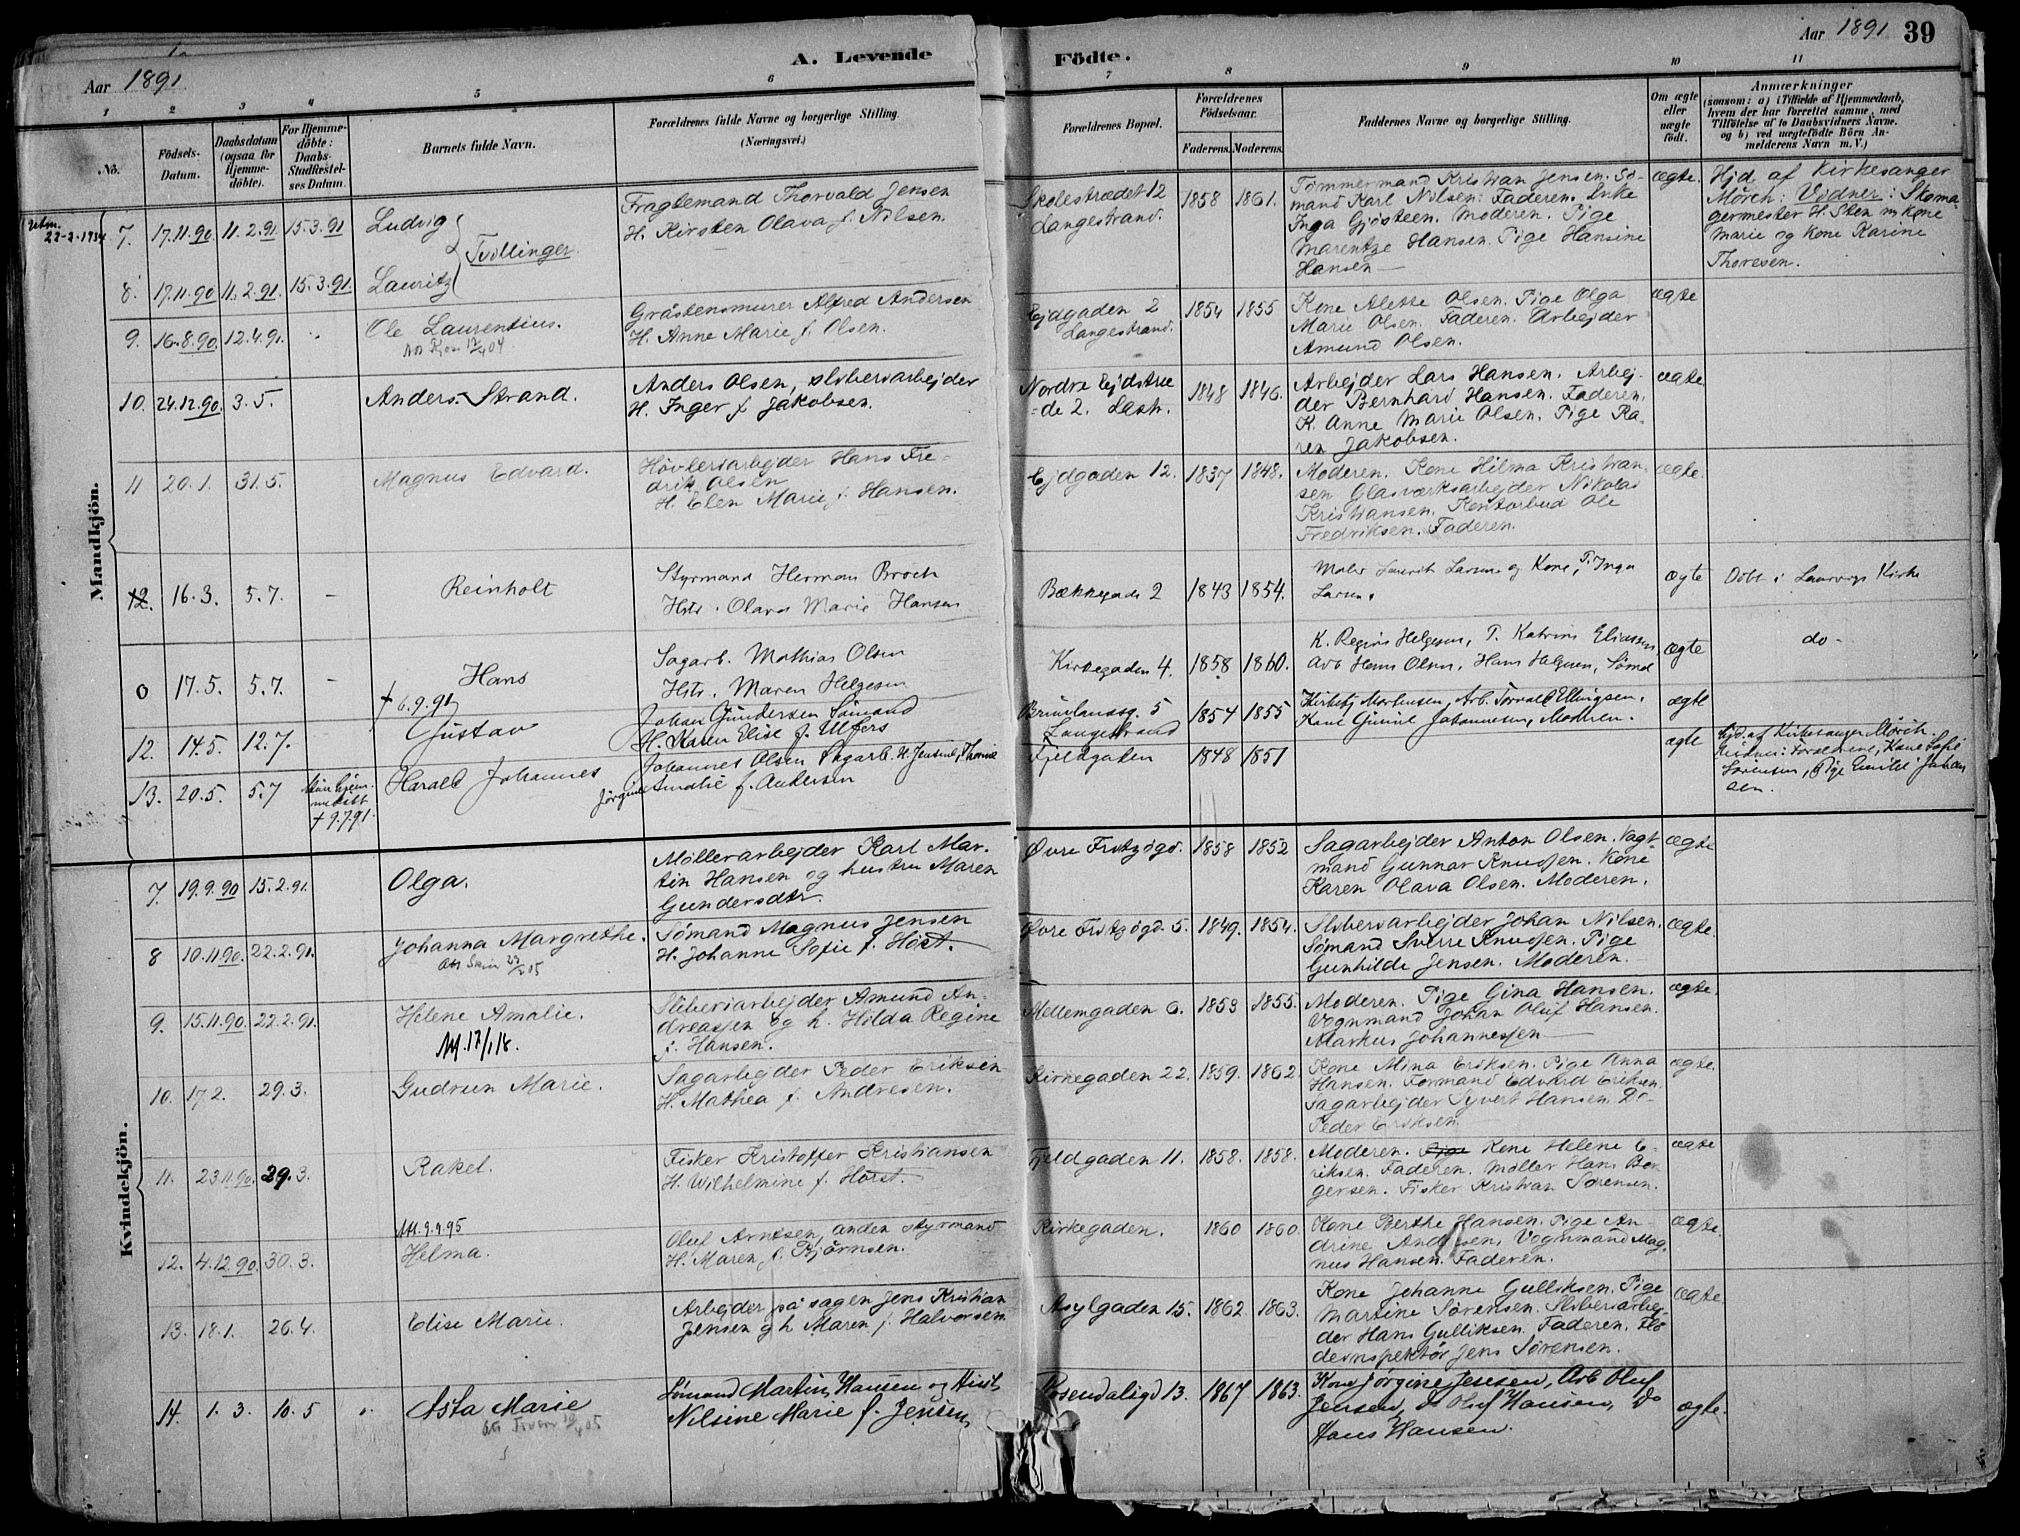 Aar 1891
A. Levende
Födte.
Aar 1891
39
1 2 3 4 5 6 7 8 9 10 11
No.
Födsels-Datum.
Daabsdatum (ogsaa for Hjemmedöbte).
For Hjemmedöbte: Daabs-Stadfæstelses Datum.
Barnets fulde Navn.
Forældrenes fulde Navne og borgerlige Stilling. (Næringsvei.)
Forældrenes Bopæl.
Forældrenes Födselsaar.
Faderens. Moderens.
Faddernes Navne og borgerlige Stilling.
Om ægte eller uægte födt.
Anmærkninger
(saasom: a) i Tilfælde af Hjemmedaab, hvem der har forrettet samme, med Tilföielse af to Daabsvidners Navne. og b) ved uægtefödte Börn Anmelderens Navn m. V.)
Mandkjön.
22-2-1934
7. 17.11.90. 11.2.91. 15.3.91 Ludvig
Tvillinger
8. 17.11.90 11.2.91. 15.3.91. Lauritz
Fragtemand Thorvald Jensen
H. Kirsten Olava f. Nilsen.
Skolestrædet 12
Langestrand.
1858 1861.
Tømmermand Kristian Jensen. Sø-
mand Karl Nilsen. Faderen. Enke
Inga Gjøsteen. Moderen. Pige
Marentze Hansen. Pige Hansine
Hansen
ægte.
Hjd. af Kirkesanger
Mørch: Vidner: Skoma-
germester H. Sten m kone
Marie og Kone Karine
Thoresen.
9. 16.8.90. 12.4.91. Ole Laurentius.
Gråstensmurer Alfred Andersen
H. Anne Marie f. Olsen.
Ejdgaden 2
Langestrand.
1854 1855
Kone Alette Olsen. Pige Olga
Marie Olsen. Faderen. Arbejder
Amund Olsen.
ægte
10. 24.12.90. 3.5. Anders Strand.
Anders Olsen, sliberiarbejder
H. Inger f. Jakobsen.
Nordre Ejdstræ
de 2. Lastr.
1848 1846.
Arbejder Lars Hansen. Arbej-
der Bernhard Hansen. Faderen.
K. Anne Marie Olsen. Pige Ka-
ren Jakobsen.
ægte
11 20.1. 31.5. Magnus Edvard.
Høvleriarbejder Hans Fre-
drik Olsen
H. Elen Marie f. Hansen.
Ejdgaden 12.
1837 1848.
Moderen. Kone Hilma Kristian-
sen Glasværksarbejder Nikolai
Kristiansen. Kontorbud Ole
Fredriksen. Faderen.
ægte.
12. 16.3. 5.7. – Reinholt
Styrmand Herman Broch
Hstr. Olava Marie Hansen
Bækkegade 2
1843 1854.
Maler Laurits Larsen og Kone, P. Inga
Larsen.
ægte
Døbt i Laurvigs Kirke
0 17.5. 5.7. – Hans
† 6.9.91
Sagarb. Mathias Olsen
Hstr. Maren Helgesen
Kirkegaden 4.
1858 1860.
K. Regine Helgesen, P. Katrine Eliassen,
Arb Hans Olsen, Hans Helgesen, Sømd
ægte
do-
12. 14.5. 12.7. Gustav
Johan Gundersen Sømand
H. Karen Elise f. Ulfers
Brunlanesg. 5
Langestrand
1854 1855
Mortensen, Arb. Torvald Ellingsen.
Kone Gunild Johannesen, Moderen.
ægte
13. 20.5. 5.7 † 9.7.91. Harald Johannes
Johannes Olsen Sagarb. H. Jensine Thomine
Jørgine Amalie f. Andersen
Fjeldgaden
1848 1851
ægte
Hjd. af Kirkesanger Mørch.
Vidner: Forældrene, Kone Sofie
Sørensen, Pige Emilie Johan
sen.
Kvindekjön.
7. 19.9.90 15.2.91. Olga.
Møllerarbejder Karl Mar-
tin Hansen og hustru Maren
Gundersdtr.
Øvre Fritzøgd.
1858 1852
Sagarbejder Anton Olsen. Vagt-
mand Gunnar Knudsen. Kone
Karen Olava Olsen. Moderen.
ægte
8 10.11.90. 22.2.91. Johanna Margrethe.
Sømand Magnus Jensen
H. Johanne Sofie f. Høst.
Øvre Fritzøgd. 5.
1849. 1854.
Sliberiarbejder Johan Nilsen.
Sømand Sverre Knudsen. Pige
Gunhilde Jensen. Moderen.
ægte.
9. 15.11.90. 22.2.91. Helene Amalie.
Att. 17/1 18.
Sliberiarbejder Amund An-
dreassen og h. Hilda Regine
f. Hansen.
Mellemgaden 6.
1853 1855.
Moderen. Pige Gina Hansen.
Vognmand Johan Oluf Hansen.
Markus Johannessen
ægte.
10. 17.2. 29.3. Gudrun Marie.
Sagarbejder Peder Eriksen
H. Mathea f. Andresen.
Kirkegaden 22.
1859. 1862.
Kone Mina Eriksen. Pige Anna
Hansen. Formand Edvard Eriksen.
Sagarbejder Syvert Hansen. Do-
Peder Eriksen
ægte.
11. 23.11.90. 29.3. Rakel.
Fisker Kristoffer Kristiansen
H. Wilhelmine f. Horst.
Fjeldgaden 11.
1858. 1858.
Moderen. Pige Kone Helene E-
riksen. Faderen. Møller Hans Bør-
gersen. Fisker Kristian Sørensen.
ægte
12. 4.12.90. 30.3. Helma.
Att. 9.9.95
Oluf Arntsen, anden styrmand
H. Maren f. Bjørnsen.
Kirkegaden.
1860 1860.
Kone Berthe Hansen. Pige An-
drine Andersen. Vognmand Mag-
nus Hansen. Faderen.
ægte.
13. 18.1. 26.4. Elise Marie.
Arbejder på sagen Jens Kristian
Jensen og h Maren f. Halvorsen
Asylgaden 15.
1862 1863.
Kone Johanne Gulliksen. Pige
Martine Sørensen. Sliberiarbej-
der Hans Gulliksen. Faderen. Flø-
deinspektør Jens Sørensen.
ægte
14. 1.3. 10.5 Asta Marie
Sømand Martin Hansen og Hust
Nilsine Marie f. Jensen
Rosendaligd 13.
1867 1863.
Kone Jørgine Jensen, Arb Oluf
Jensen, Do Oluf Hansen, Do
Hans Hansen.
ægte.